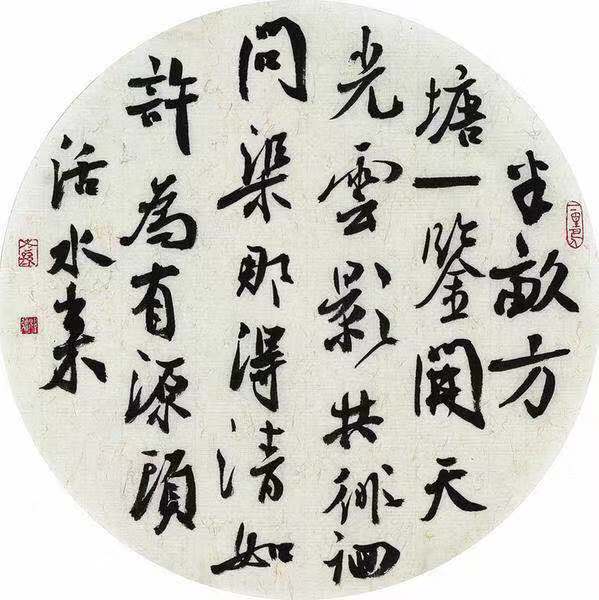 半畝方
塘一鑒開天
光雲影共徘徊
問渠那得清如
許為有源頭
活水來